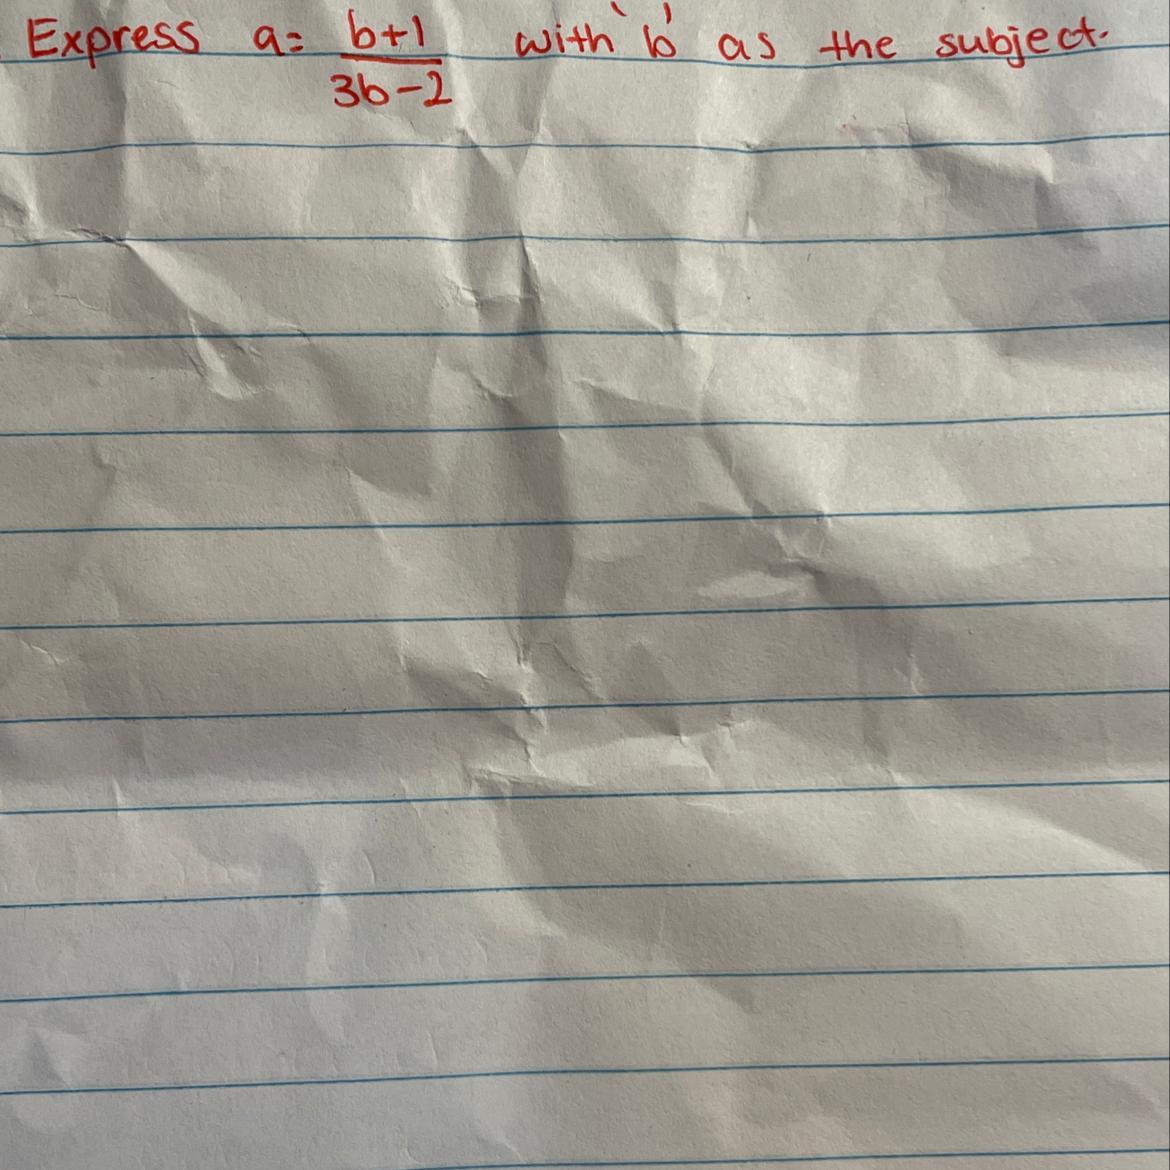 Express a = \frac{b+1}{3b-2} with 'b' as the subject.